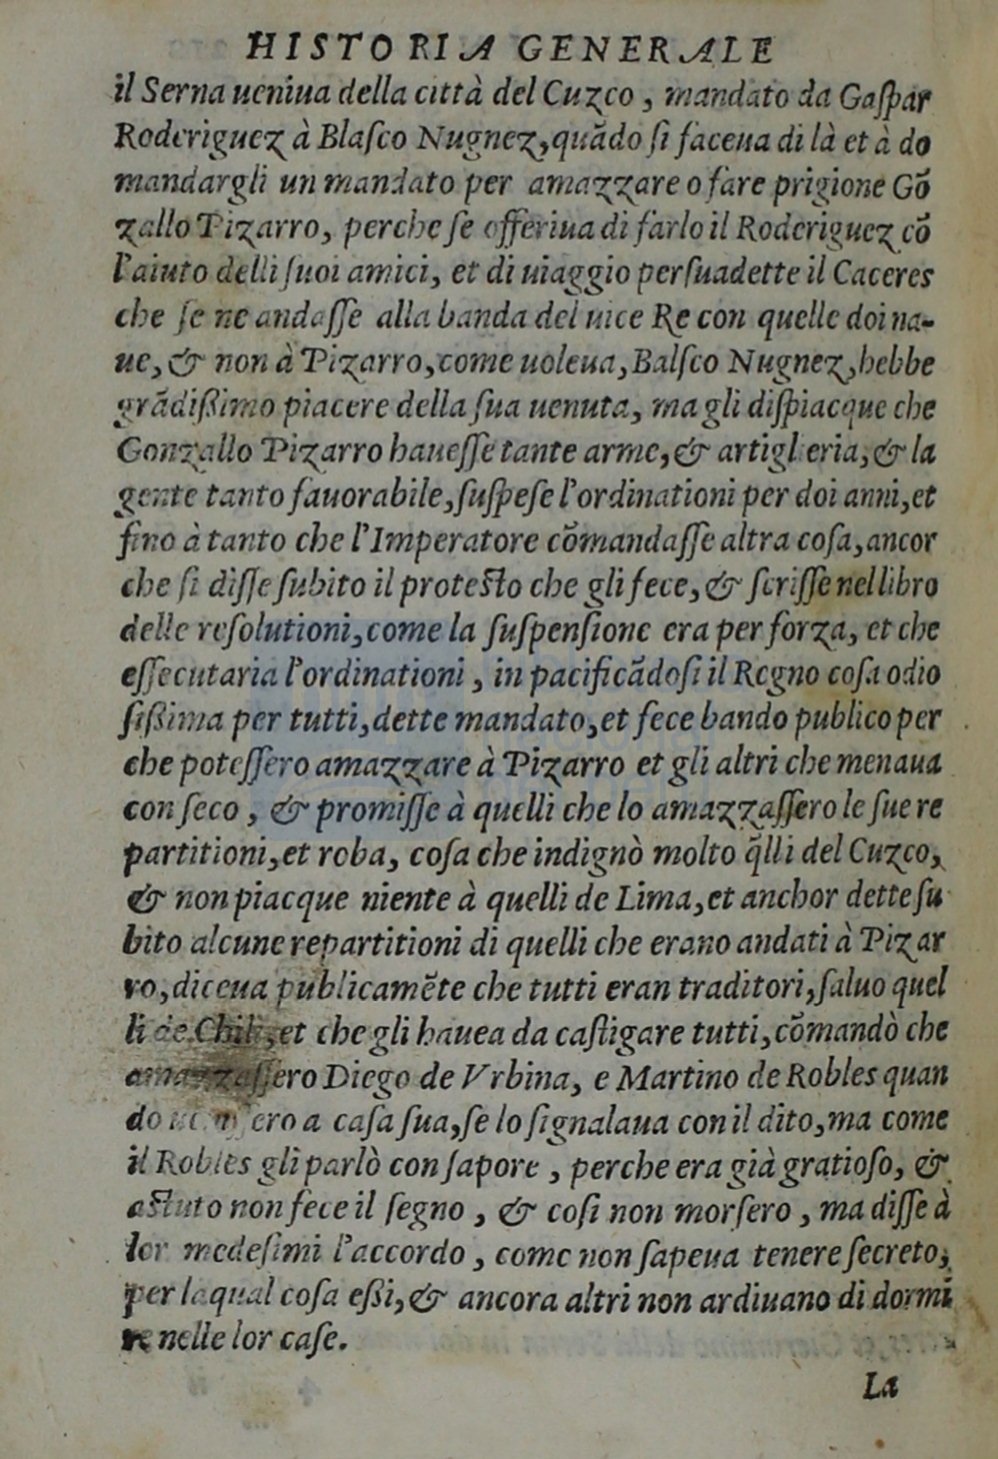 HISTORIA GENERALE
il Serna ueniua della città del Cuzco, mandato da Gaſpar
Roderiguez à Blaſco Nugnez, quãdo ſi faceua di là et à do
mandargli un mandato per amazzare o fare prigione Gõ
zallo Pizarro, perche ſe offeriua di farlo il Roderiguez cõ
l'aiuto delli ſuoi amici, et di uiaggio perſuadette il Caceres
che ſe ne andaſſe alla banda del uice Re con quelle doi na-
ue, & non à Pizarro, come uoleua, Balſco Nugnez, hebbe
grãdiſſimo piacere della ſua uenuta, ma gli diſpiacque che
Gonzallo Pizarro haueſſe tante arme, & artiglieria, & la
gente tanto fauorabile, ſuſpeſe l'ordinationi per doi anni, et
fino à tanto che l'Imperatore cõmandaſſe altra coſa, ancor
che ſi diſſe ſubito il proteſto che gli fece, & ſcriſſe nel libro
delle reſolutioni, come la ſuſpenſione era per forza, et che
eſſecutaria l'ordinationi, in pacificãdoſi il Regno coſa odio
ſiſſima per tutti, dette mandato, et fece bando publico per
che poteſſero amazzare à Pizarro et gli altri che menaua
con ſeco, & promiſſe à quelli che lo amazzaſſero le ſue re
partitioni, et roba, coſa che indignò molto q̃lli del Cuzco,
& non piacque niente à quelli de Lima, et anchor dette ſu
bito alcune repartitioni di quelli che erano andati à Pizar
ro, diceua publicamẽte che tutti eran traditori, ſaluo quel
li de Chili, et che gli hauea da caſtigare tutti, cõmandò che
amazzaſſero Diego de Vrbina, e Martino de Robles quan
do ueniſſero a caſa ſua, ſe lo ſignalaua con il dito, ma come
il Robles gli parlò con ſapore, perche era già gratioſo, &
aſtuto non fece il ſegno, & coſi non morſero, ma diſſe à
lor medeſimi l'accordo, come non ſapeua tenere ſecreto,
per laqual coſa eſſi, & ancora altri non ardiuano di dormi
re nelle lor caſe.
La